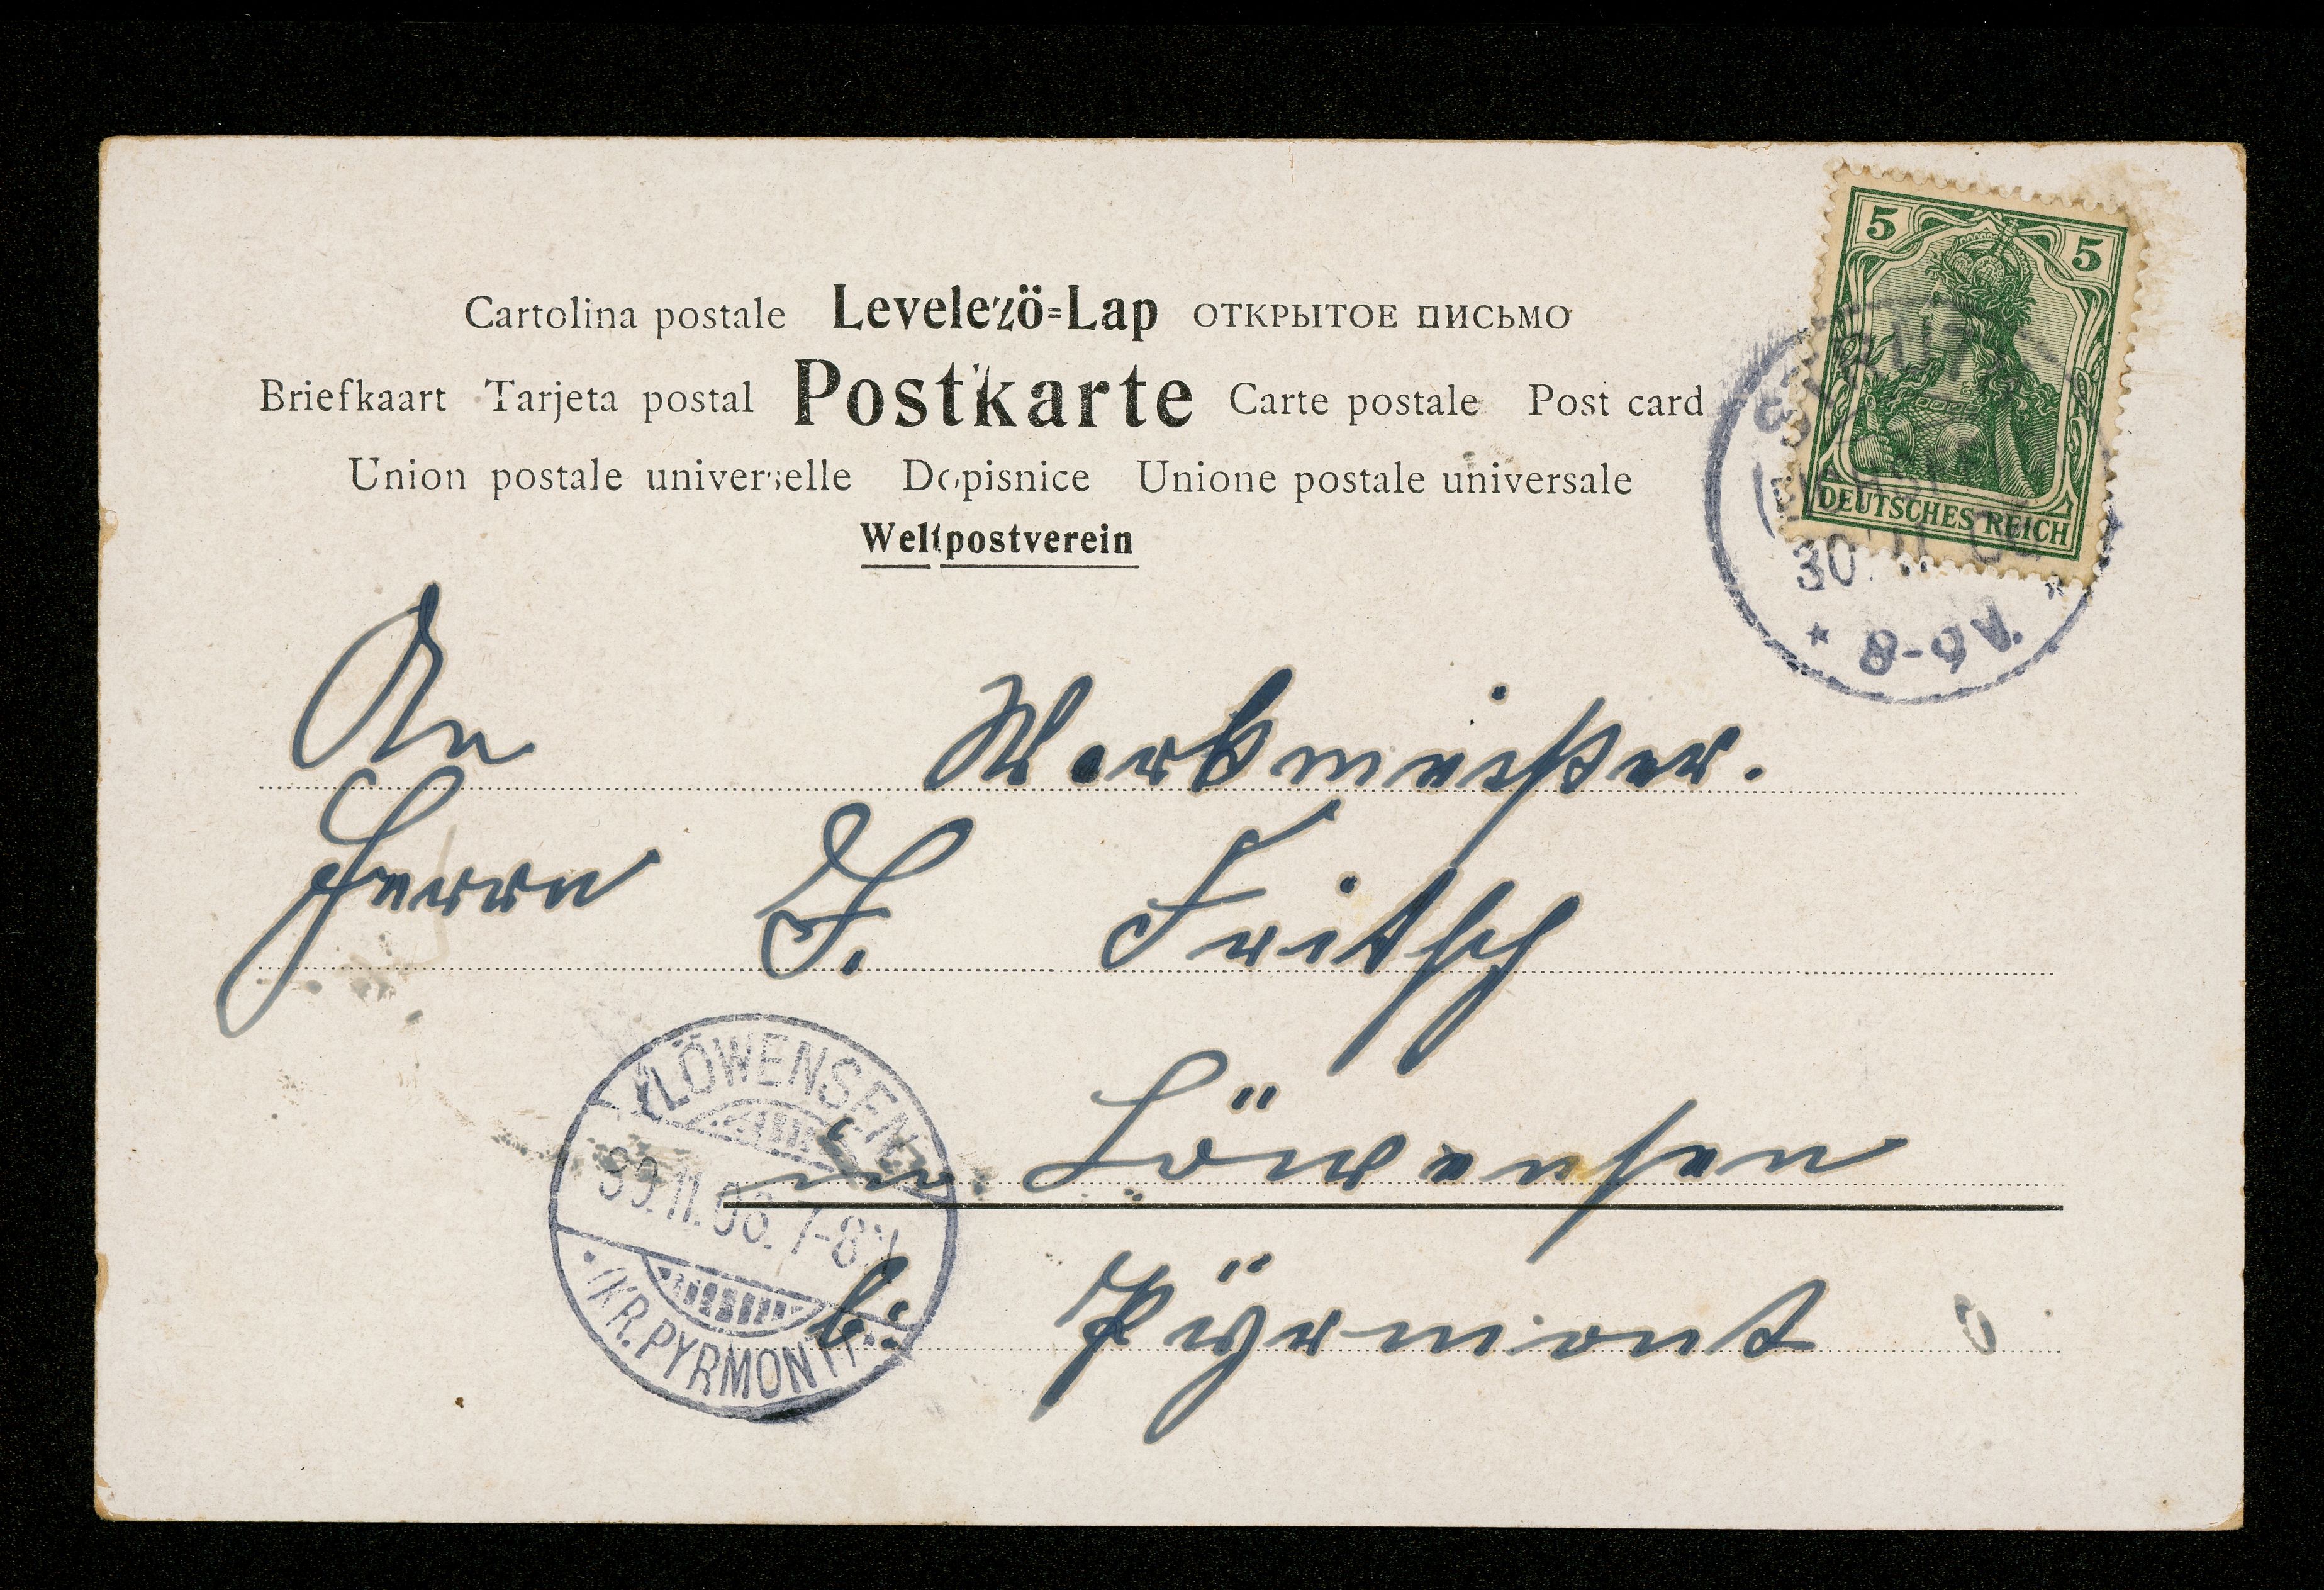 Cartolina postale Levelező=Lap ОТКРЫТОЕ ПИСЬМО
Briefkaart Tarjeta postal Postkarte Carte postale Post card
Union postale universelle Dopisnice Unione postale universale
Weltpostverein
5 5
DEUTSCHES REICH
30. 11. 06
* 8-9 V. *
An Werkmeister.
Herrn F. Fritsch
in Löwensen
b: Pÿrmont
LÖWENSEN
11.06. 7-8
(KR. PYRMONT)